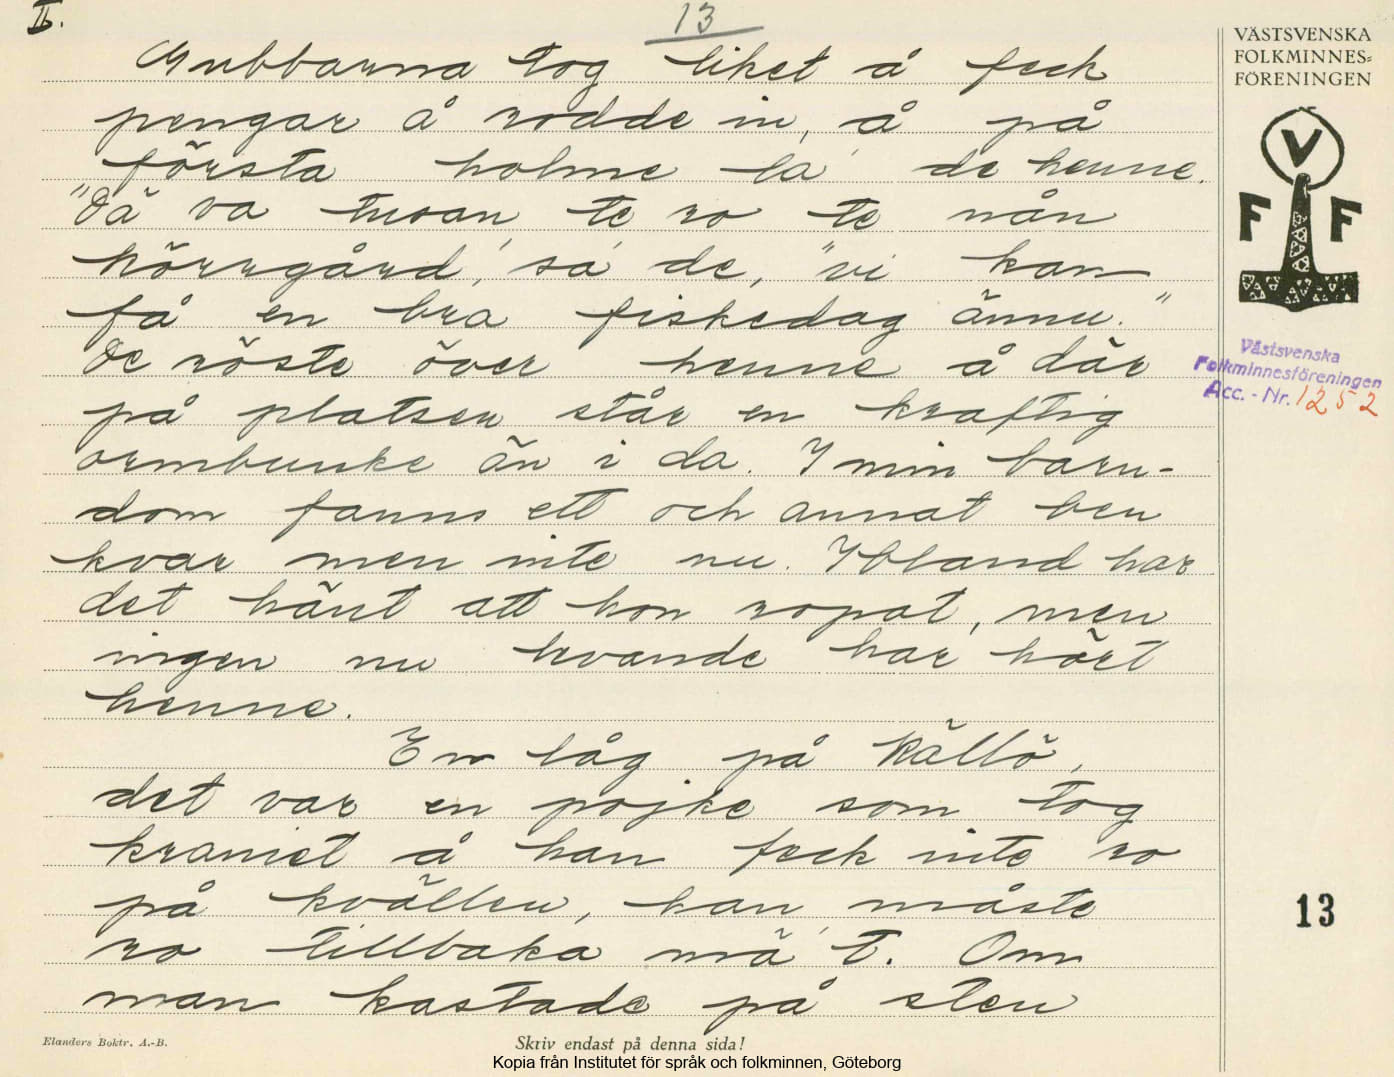 II.
13
Gubbarna tog liket å feck
pengar å rodde in, å på
första holme la de henne.
"Dä va
te ro te nån
körrgård, sa de, "vi kan
få en bra fiskedag ännu."
De röste över henne å där
på platsen står en kraftig
ormbunke än i da. I min barn-
dom fanns ett och annat ben
kvar men inte nu. Ibland har
det hänt att hon ropat, men
ingen nu levande har hört
henne.
En låg på Källö,
det var en pojke som tog
kraniet å han feck inte ro
på kvällen, han måste
ro tillbaka mä't. Om
man kastade på sten
VÄSTSVENSKA
FOLKMINNES=
FÖRENINGEN
V
F F
Västsvenska
Folkminnesföreningen
Acc. - Nr. 1252
13
Elanders Boktr. A.-B.
Skriv endast på denna sida!
Kopia från Institutet för språk och folkminnen, Göteborg